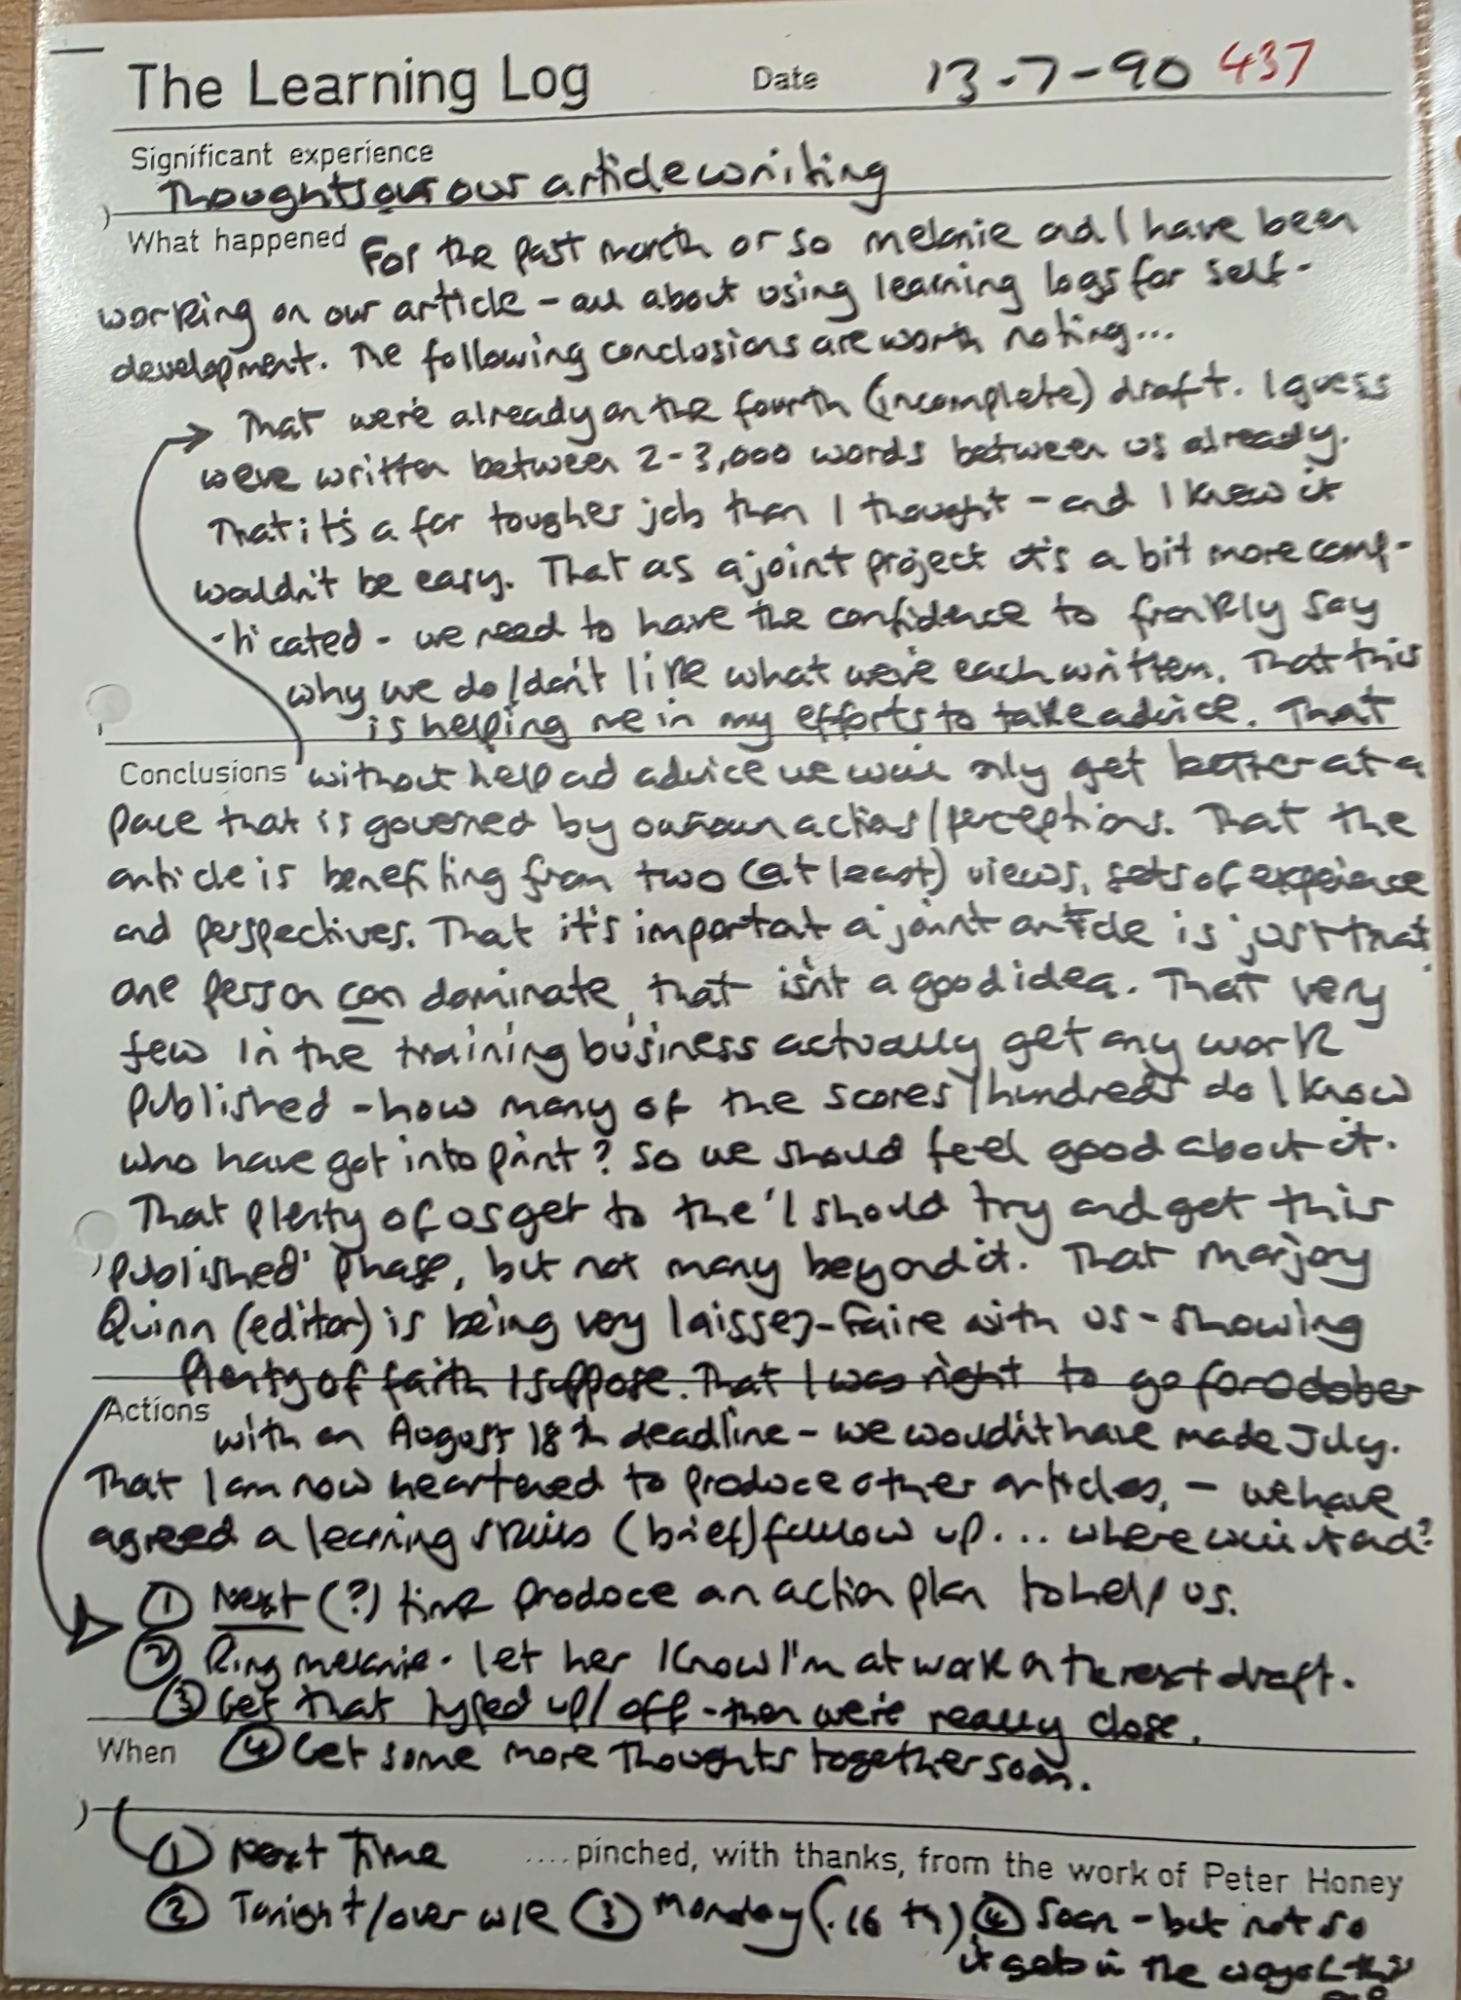 The Learning Log Date 13-7-90 437
Significant experience
Thoughts on our article writing
What happened For the past month or so Melanie and I have been
working on our article - all about using learning logs for self-
development. The following conclusions are worth noting...
That we're already on the fourth (incomplete) draft. I guess
we've written between 2-3,000 words between us already.
That it's a far tougher job than I thought - and I knew it
wouldn't be easy. That as a joint project it's a bit more comp-
-licated - we need to have the confidence to frankly say
why we do/don't like what we've each written. That this
is helping me in my efforts to take advice. That
Conclusions without help and advice we will only get better at a
pace that is governed by our own actions/perceptions. That the
article is benefiting from two (at least) views, sets of experience
and perspectives. That it's important a joint article is just that
one person can dominate, that isn't a good idea. That very
few in the training business actually get any work
published - how many of the scores/hundreds do I know
who have got into print? So we should feel good about it.
That plenty of us get to the 'I should try and get this
published' phase, but not many beyond it. That Marjory
Quinn (editor) is being very laissez-faire with us - showing
plenty of faith I suppose. That I was right to go for October
Actions with an August 18th deadline - we wouldn't have made July.
That I am now heartened to produce other articles, - we have
agreed a learning skills (brief) follow up... where will it end?
① Next (?) time produce an action plan to help us.
② Ring Melanie - let her know I'm at work on the next draft.
③ Get that typed up/off - then we're really close.
When ④ Get some more thoughts together soon.
① Next Time ....pinched, with thanks, from the work of Peter Honey
② Tonight/over w/e ③ Monday (16th) ④ Soon - but not so
it gets in the way of this